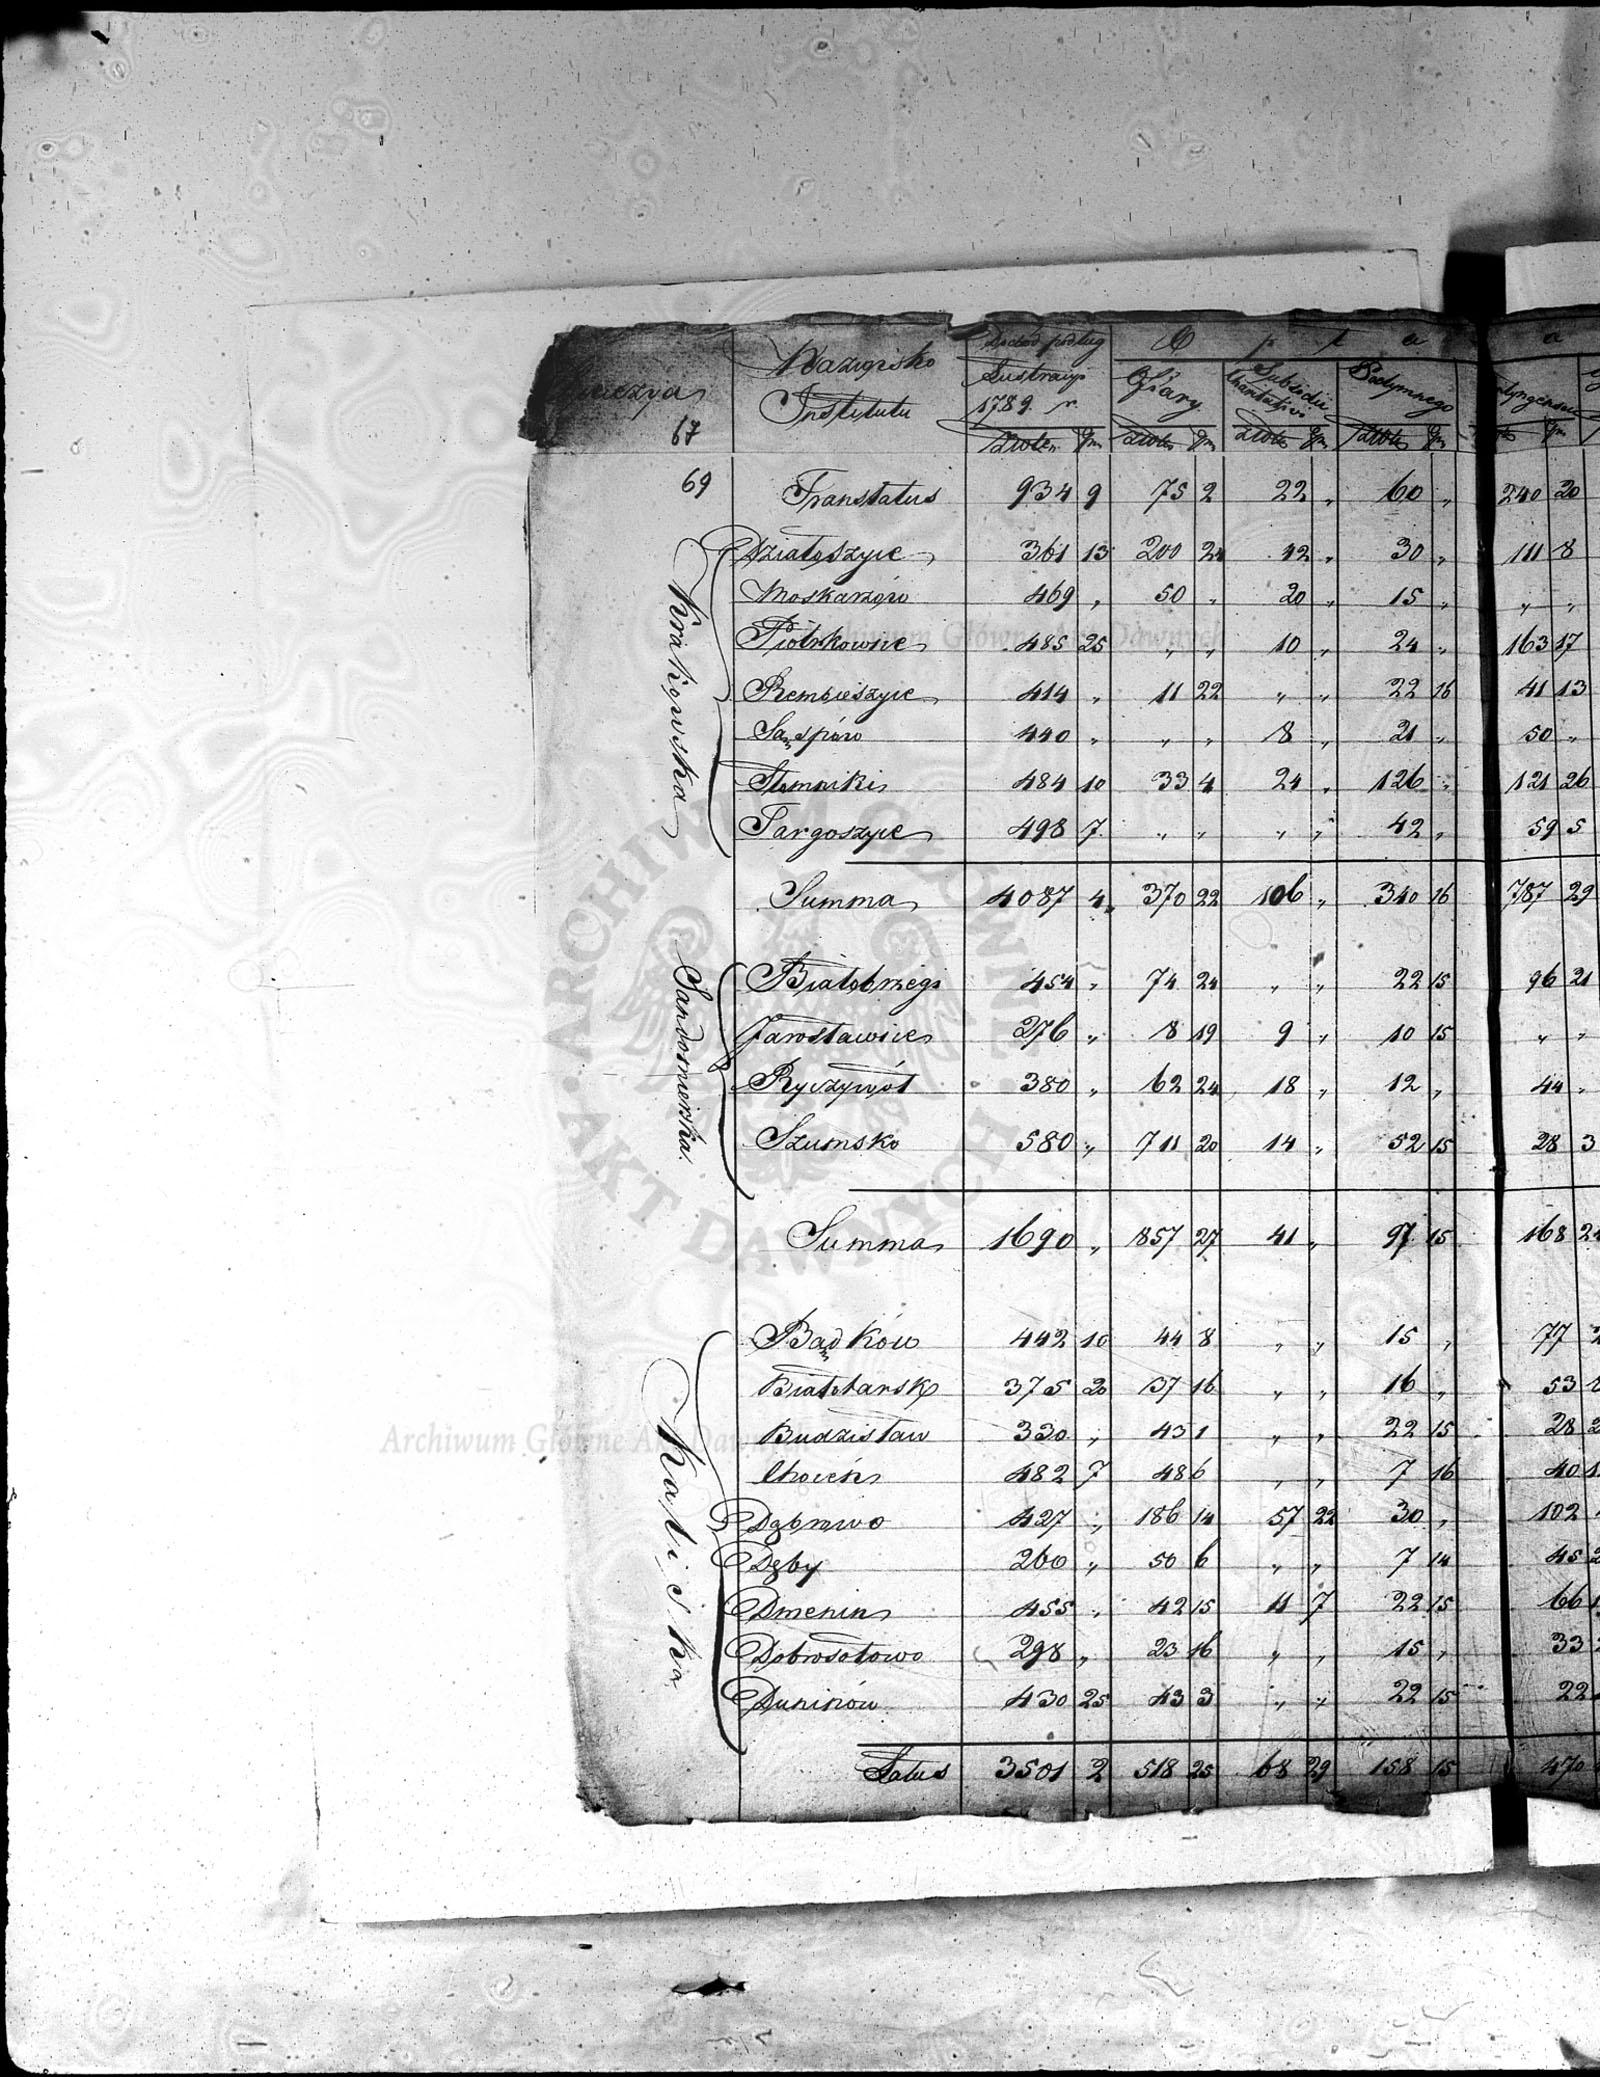 Dochód podług O p ł a a
Nazwisko Lustracyi Ofiary Subsidii Charitativi Podymnego
Dyecezya Institutu 1789. r.
67 złote gr złote gr złote gr złote gr gr
69 Transłatus 934 9 75 2 22 „ 60 „ 240 20
Krakowska
Działoszyce 361 13 200 24 42 „ 30 „ 111 8
Moskarzów 469 „ 50 „ 20 „ 15 „ „ „
Piotrkowice 485 25 „ „ 10 „ 24 „ 163 17
Rembieszyce 414 „ 11 22 „ „ 22 16 41 13
Sąspów 440 „ „ „ 8 „ 21 „ 50 „
Słomniki 484 10 33 4 24 „ 126 „ 121 26
Targoszyce 498 7 „ „ „ „ 42 „ 59 5
Summa 4087 4 370 22 106 „ 340 16 787 29
Sandomierska
Białobrzegi 454 „ 74 24 „ „ 22 15 96 21
Jarosławice 276 „ 8 19 9 „ 10 15 „ „
Ryczywół 380 „ 62 24 18 „ 12 „ 44 „
Szumsko 580 „ 711 20 14 „ 52 15 28 3
Summa 1690 „ 857 27 41 „ 97 15 168 24
Kaliska
Bądków 442 10 44 8 „ „ 15 „ 77
Białotarsk 375 20 37 16 „ „ 16 „ 53
Budzisław 330 „ 43 1 „ „ 22 15 28
Choceń 482 7 48 6 „ „ 7 16 40
Dąbrowo 427 „ 186 14 57 22 30 „ 102
Dęby 260 „ 50 6 „ „ 7 14 45
Dmenin 455 „ 42 15 11 7 22 15 66
Dobrosołowo 298 „ 23 16 „ „ 15 „ 33
Duninów 430 25 43 3 „ „ 22 15 22
Latus 3501 2 518 25 68 29 158 15 470
Archiwum Główne Akt Dawnych
ARCHIWUM GŁÓWNE · AKT DAWNYCH ·
Archiwum Główne Akt Dawnych